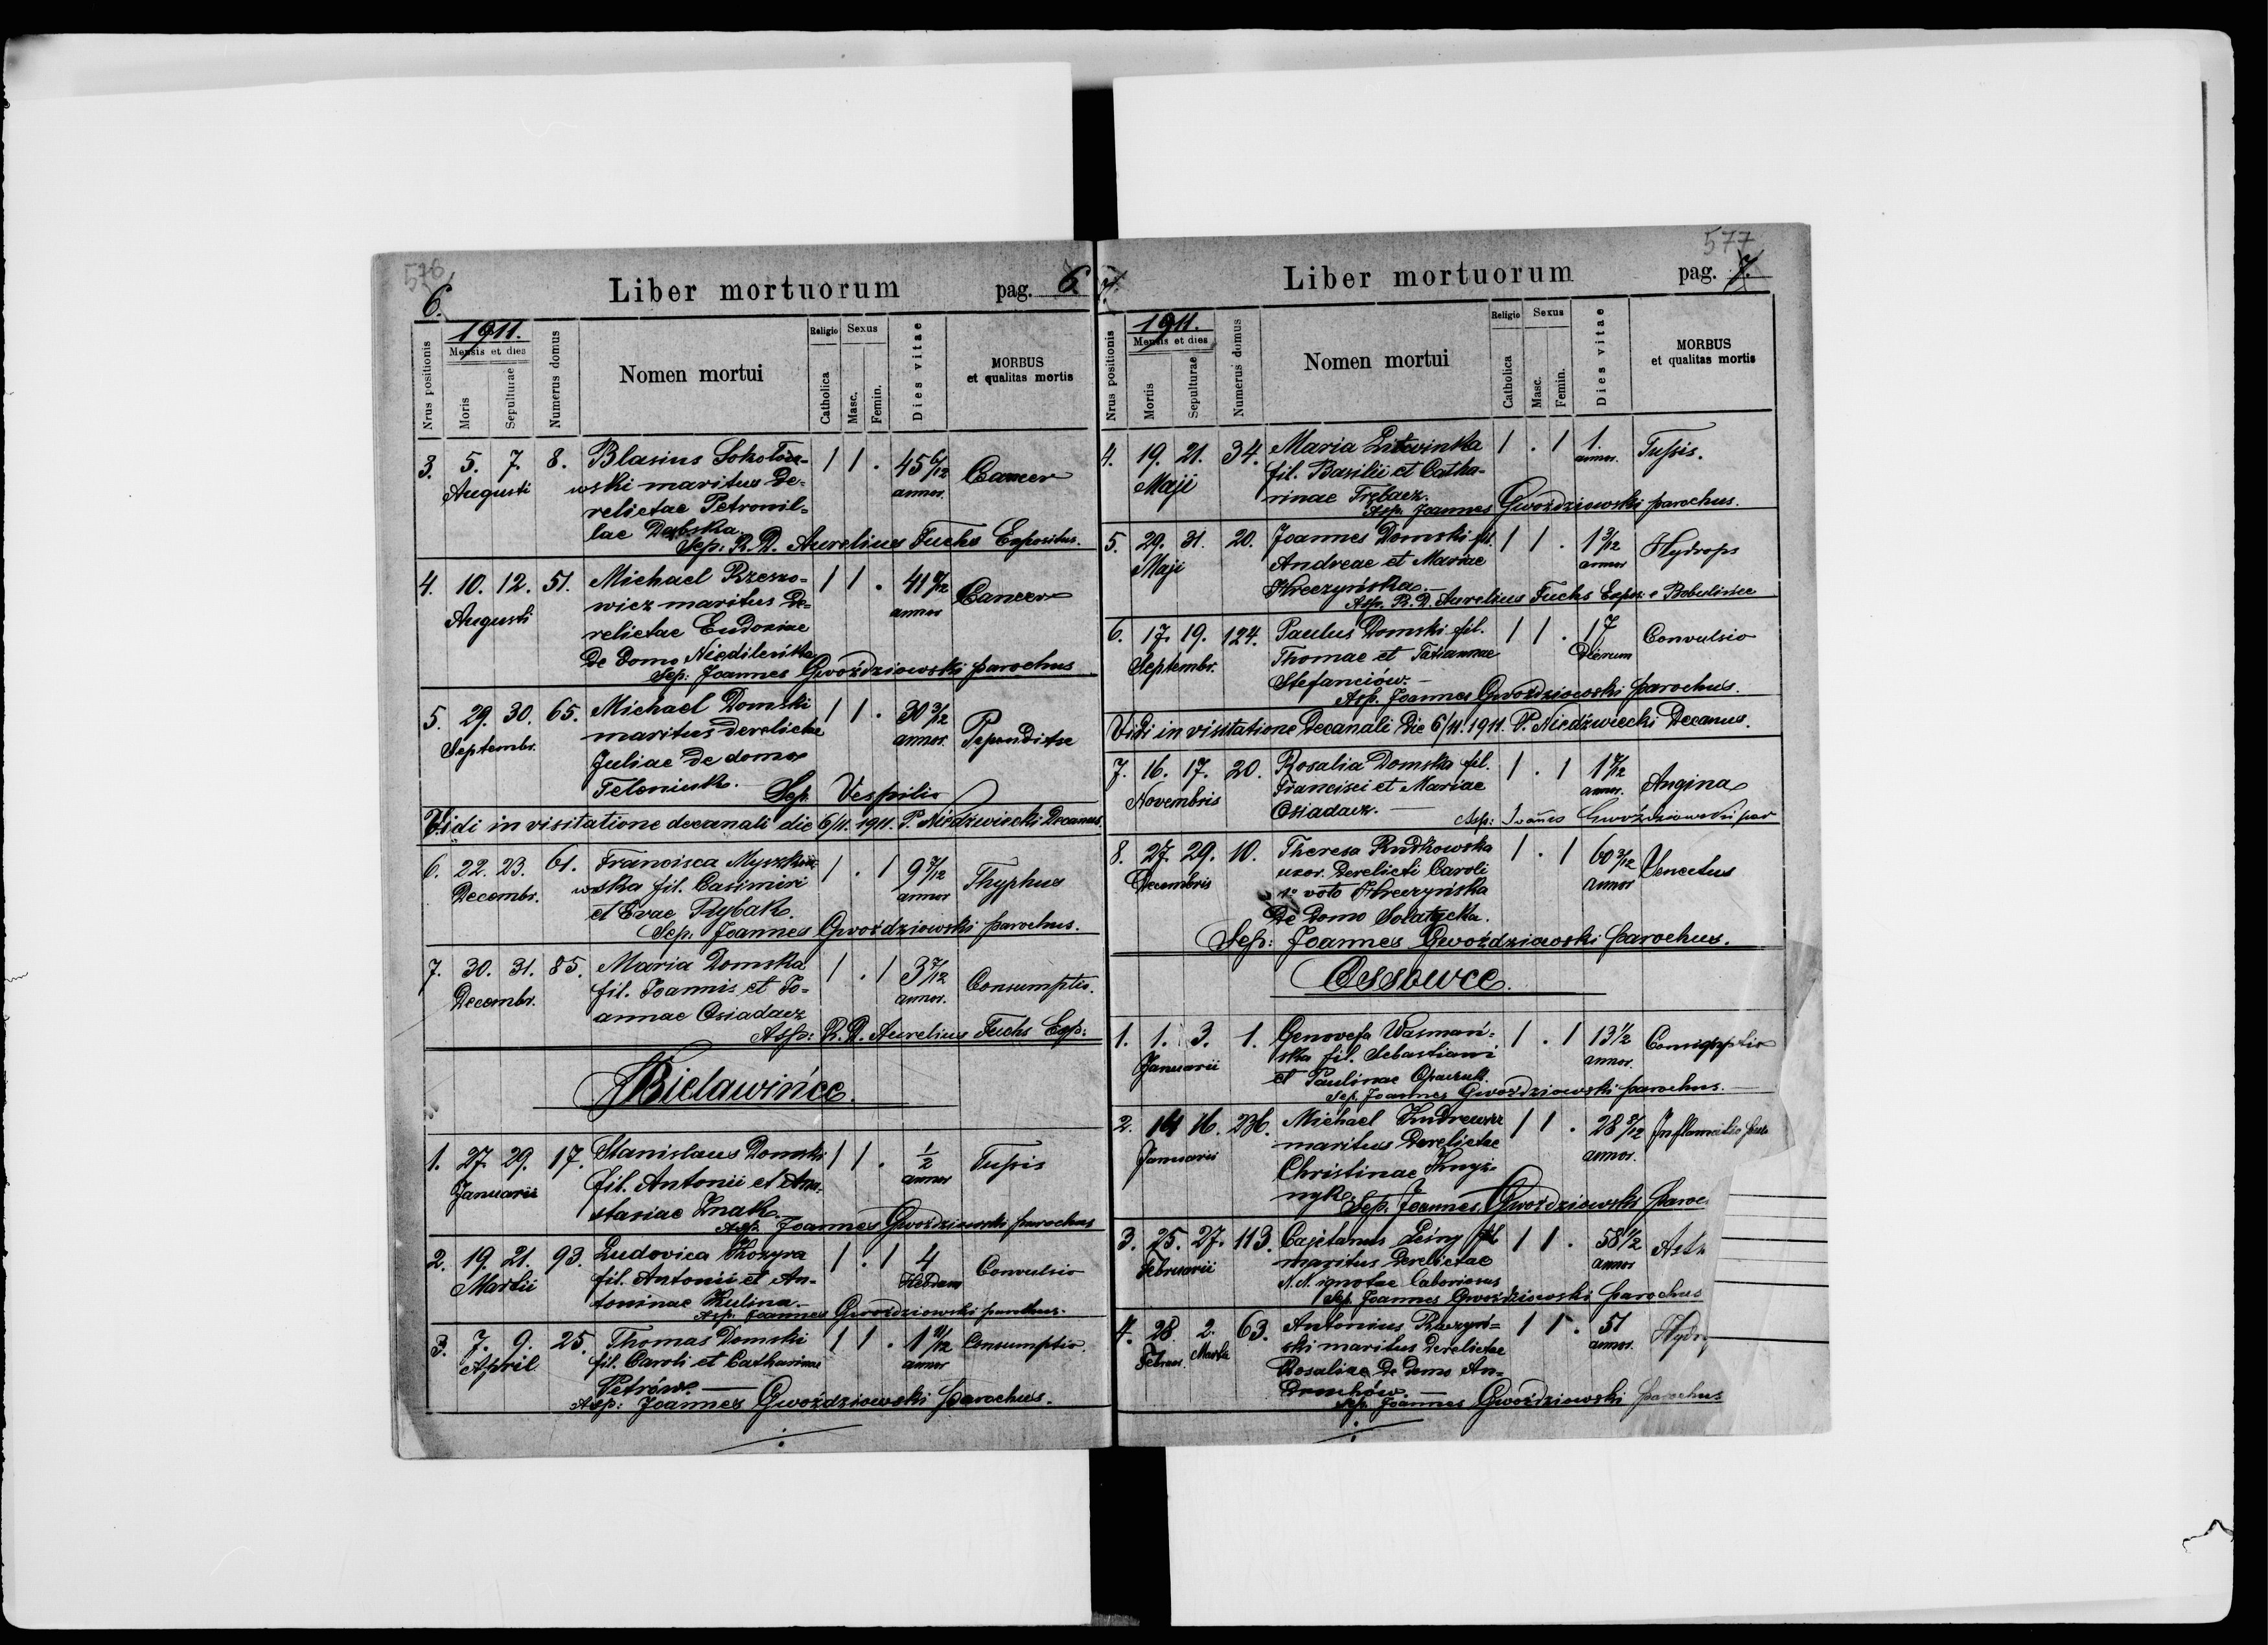 576
6.
Liber mortuorum pag. 6
Nrus positionis
1911.
Mensis et dies
Moris
Sepulturae
Numerus domus
Nomen mortui
Religio
Catholica
Sexus
Masc.
Femin.
Dies vitae
MORBUS
et qualitas mortis
3. 5. 7. 8. Blasius Sokoło- 1 1 . 45 6/12 Cancer
Augusti wski maritus de- annor.
relictae Petronil-
lae Dąbska.
Sep: R.D. Aurelius Fuchs Expositus.
4. 10. 12. 51. Michael Rzeszo- 1 1 . 41 Cancer
Augusti wicz maritus de- annor
relictae Eudoxiae
de domo
Sep: Joannes Gwoździowski parochus
5. 29. 30. 65. Michael Domski 1 1 . 30 3/12
Septembr. maritus derelictae annor.
Juliae de domo
Teleniuk.
Sep. Vespilio
Vidi in visitatione decanali die 6/11. 1911. P. Niedźwiecki Decanus.
6. 22. 23. 61. Francisca 1 . 1 9 7/12 Thyphus
Decembr. wska fil. Casimiri annor
et Evae Rybak.
Sep. Joannes Gwoździowski parochus.
7. 30. 31. 85. Maria Domska 1 . 1 3 7/12 Consumptio.
Decembr. fil. Joannis et Jo- annor.
annae Osiadacz
Asp: R.D. Aurelius Fuchs Exp:
Bielawińce.
1. 27. 29. 17. Stanislaus Domski 1 1 . 1/2 Tussis
Januarii fil. Antonii et Ana- annor
stasiae Znak.
Asp. Joannes Gwoździowski parochus
2. 19. 21. 93. Ludovica Kozyra 1 . 1 4 Convulsio
Martii fil. Antonii et An- Hebdom
toninae Kulina.
Asp. Joannes Gwoździowski parochus.
3. 7. 9. 25. Thomas Domski 1 1 . 1 Consumptio
April fil. Caroli et Catharinae annor
Petrów.
Asp: Joannes Gwoździowski parochus.
577
7.
Liber mortuorum pag. 7.
Nrus positionis
1911.
Mensis et dies
Mortis
Sepulturae
Numerus domus
Nomen mortui
Religio
Catholica
Sexus
Masc.
Femin.
Dies vitae
MORBUS
et qualitas mortis
4. 19. 21. 34. Maria Litwinka 1 . 1 1. Tussis.
Maji fil. Basilii et Catha- annor.
rinae Trębacz.
Asp. Joannes Gwoździowski parochus.
5. 29. 31. 20. Joannes Domski fil. 1 1 . 1 3/12 Hydrops
Maji Andreae et Mariae annor
Kreczyńska.
Asp. R.D. Aurelius Fuchs Expos: e Bobulińce
6. 17. 19. 124. Paulus Domski fil. 1 1 . 17 Convulsio
Septembr. Thomae et Tatiannae Dierum
Stefanciów.
Asp. Joannes Gwoździowski parochus.
Vidi in visitatione Decanali die 6/11. 1911. P. Niedźwiecki Decanus.
7. 16. 17. 20. Rosalia Domska fil. 1 . 1 1 Angina
Novembris Francisci et Mariae annor.
Osiadacz.
Asp: Gwoździowski par
8. 27. 29. 10. Theresa Rudkowska 1 . 1 60 3/12
Decembris uxor. derelicti Caroli annor
1º voto Kreczyńska
De domo Sołatycka.
Sep: Joannes Gwoździowski parochus.
Ossowce.
1. 1. 3. 1. Genovefa Wasmań- 1 . 1 13 1/2
Januarii ska fil. Sebastiani annor.
et Paulinae
Sep. Joannes Gwoździowski parochus.
2. 14 16. 236. Michael 1 1 . 28
Januarii maritus derelictae annor.
Christinae
Sep. Joannes Gwoździowski paroc
3. 25. 27. 113. Cajetanus Leśny 1 1 . 58 Asth
Februarii maritus derelictae annor
N.N. ignotae laboriosus
Sep. Joannes Gwoździowski parochus
4. 28 2. 63. Antonius 1 1 . 51 Hydr
Februar. Martii ski maritus derelictae annor.
Rosaliae de domo An-
druchów.
Sep. Joannes Gwoździowski parochus